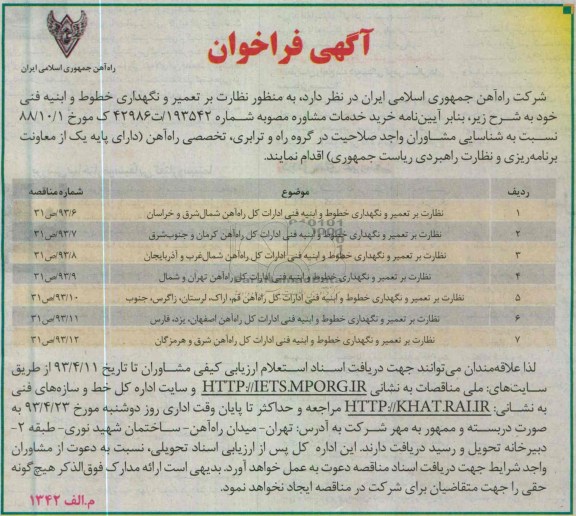 آگهی فراخوان
راه‌آهن جمهوری اسلامی ایران
شرکت راه‌آهن جمهوری اسلامی ایران در نظر دارد، به منظور نظارت بر تعمیر و نگهداری خطوط و ابنیه فنی
خود به شرح زیر، بنابر آیین‌نامه خرید خدمات مشاوره مصوبه شماره ۱۹۳۵۴۲/ت۴۲۹۸۶ ک مورخ ۸۸/۱۰/۱
نسبت به شناسایی مشاوران واجد صلاحیت در گروه راه و ترابری، تخصصی راه‌آهن (دارای پایه یک از معاونت
برنامه‌ریزی و نظارت راهبردی ریاست جمهوری) اقدام نمایند.
ردیف موضوع شماره مناقصه
۱ نظارت بر تعمیر و نگهداری خطوط و ابنیه فنی ادارات کل راه‌آهن شمال‌شرق و خراسان ۹۳/۶/ص۳۱
۲ نظارت بر تعمیر و نگهداری خطوط و ابنیه فنی ادارات کل راه‌آهن کرمان و جنوب‌شرق ۹۳/۷/ص۳۱
۳ نظارت بر تعمیر و نگهداری خطوط و ابنیه فنی ادارات کل راه‌آهن شمال‌غرب و آذربایجان ۹۳/۸/ص۳۱
۴ نظارت بر تعمیر و نگهداری خطوط و ابنیه فنی ادارات کل راه‌آهن تهران و شمال ۹۳/۹/ص۳۱
۵ نظارت بر تعمیر و نگهداری خطوط و ابنیه فنی ادارات کل راه‌آهن قم، اراک، لرستان، زاگرس، جنوب ۹۳/۱۰/ص۳۱
۶ نظارت بر تعمیر و نگهداری خطوط و ابنیه فنی ادارات کل راه‌آهن اصفهان، یزد، فارس ۹۳/۱۱/ص۳۱
۷ نظارت بر تعمیر و نگهداری خطوط و ابنیه فنی ادارات کل راه‌آهن شرق و هرمزگان ۹۳/۱۲/ص۳۱
لذا علاقه‌مندان می‌توانند جهت دریافت اسناد استعلام ارزیابی کیفی مشاوران تا تاریخ ۹۳/۴/۱۱ از طریق
سایت‌های: ملی مناقصات به نشانی HTTP://IETS.MPORG.IR و سایت اداره کل خط و سازه‌های فنی
به نشانی: HTTP://KHAT.RAI.IR مراجعه و حداکثر تا پایان وقت اداری روز دوشنبه مورخ ۹۳/۴/۲۳ به
صورت دربسته و ممهور به مهر شرکت به آدرس: تهران- میدان راه‌آهن- ساختمان شهید نوری- طبقه ۲-
دبیرخانه تحویل و رسید دریافت دارند. این اداره کل پس از ارزیابی اسناد تحویلی، نسبت به دعوت از مشاوران
واجد شرایط جهت دریافت اسناد مناقصه دعوت به عمل خواهد آورد. بدیهی است ارائه مدارک فوق‌الذکر هیچ‌گونه
حقی را جهت متقاضیان برای شرکت در مناقصه ایجاد نخواهد نمود.
م.الف ۱۳۴۲